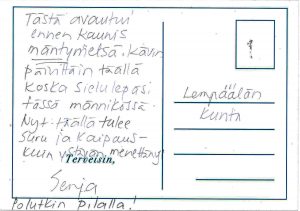 Tästä avautui
ennen kaunis
mäntymetsä. Kävin
päivittäin täällä
koska sielu lepäsi
tässä männikössä.
Nyt täällä tulee
suru ja kaipaus-
kuin ystävän menettäny
Terveisin,
Senja
Polutkin pilalla!
Lempäälän
kunta